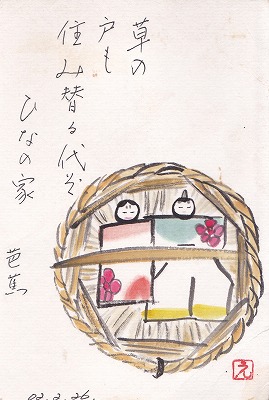 草の
戸も
住み替る代ぞ
ひなの家
芭蕉
え
02.2.26.